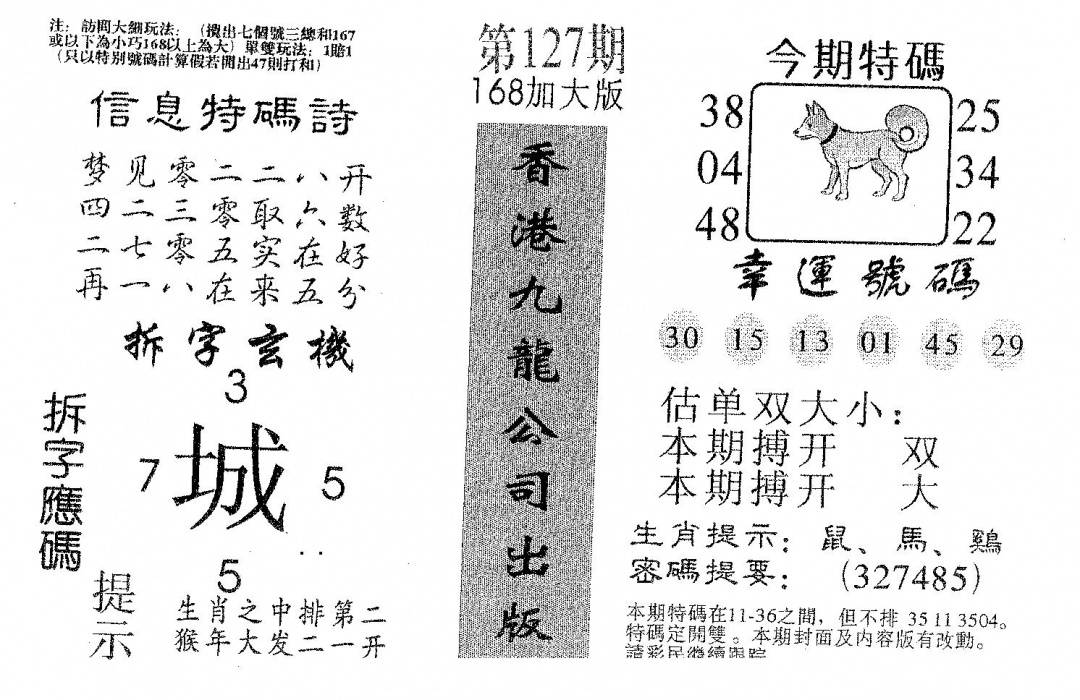 注：訪問大細玩法：（攪出七個號三總和167
或以下為小巧168以上為大）單雙玩法：1賠1
（只以特別號碼計算假若開出47則打和）
信息特碼詩
梦见零二二八开
四二三零取六数
二七零五实在好
再一八在来五分
拆字玄機
拆字應碼
3
7
城
5
5
提示
生肖之中排第二
猴年大发二一开
第127期
168加大版
香港九龍公司出版
今期特碼
38
04
48
25
34
22
幸運號碼
30 15 13 01 45 29
估单双大小：
本期搏开 双
本期搏开 大
生肖提示：鼠、馬、鷄
密碼提要：（327485）
本期特碼在11-36之間，但不排 35 11 3504。
特碼定開雙。本期封面及内容版有改動。
請彩民繼續跟踪